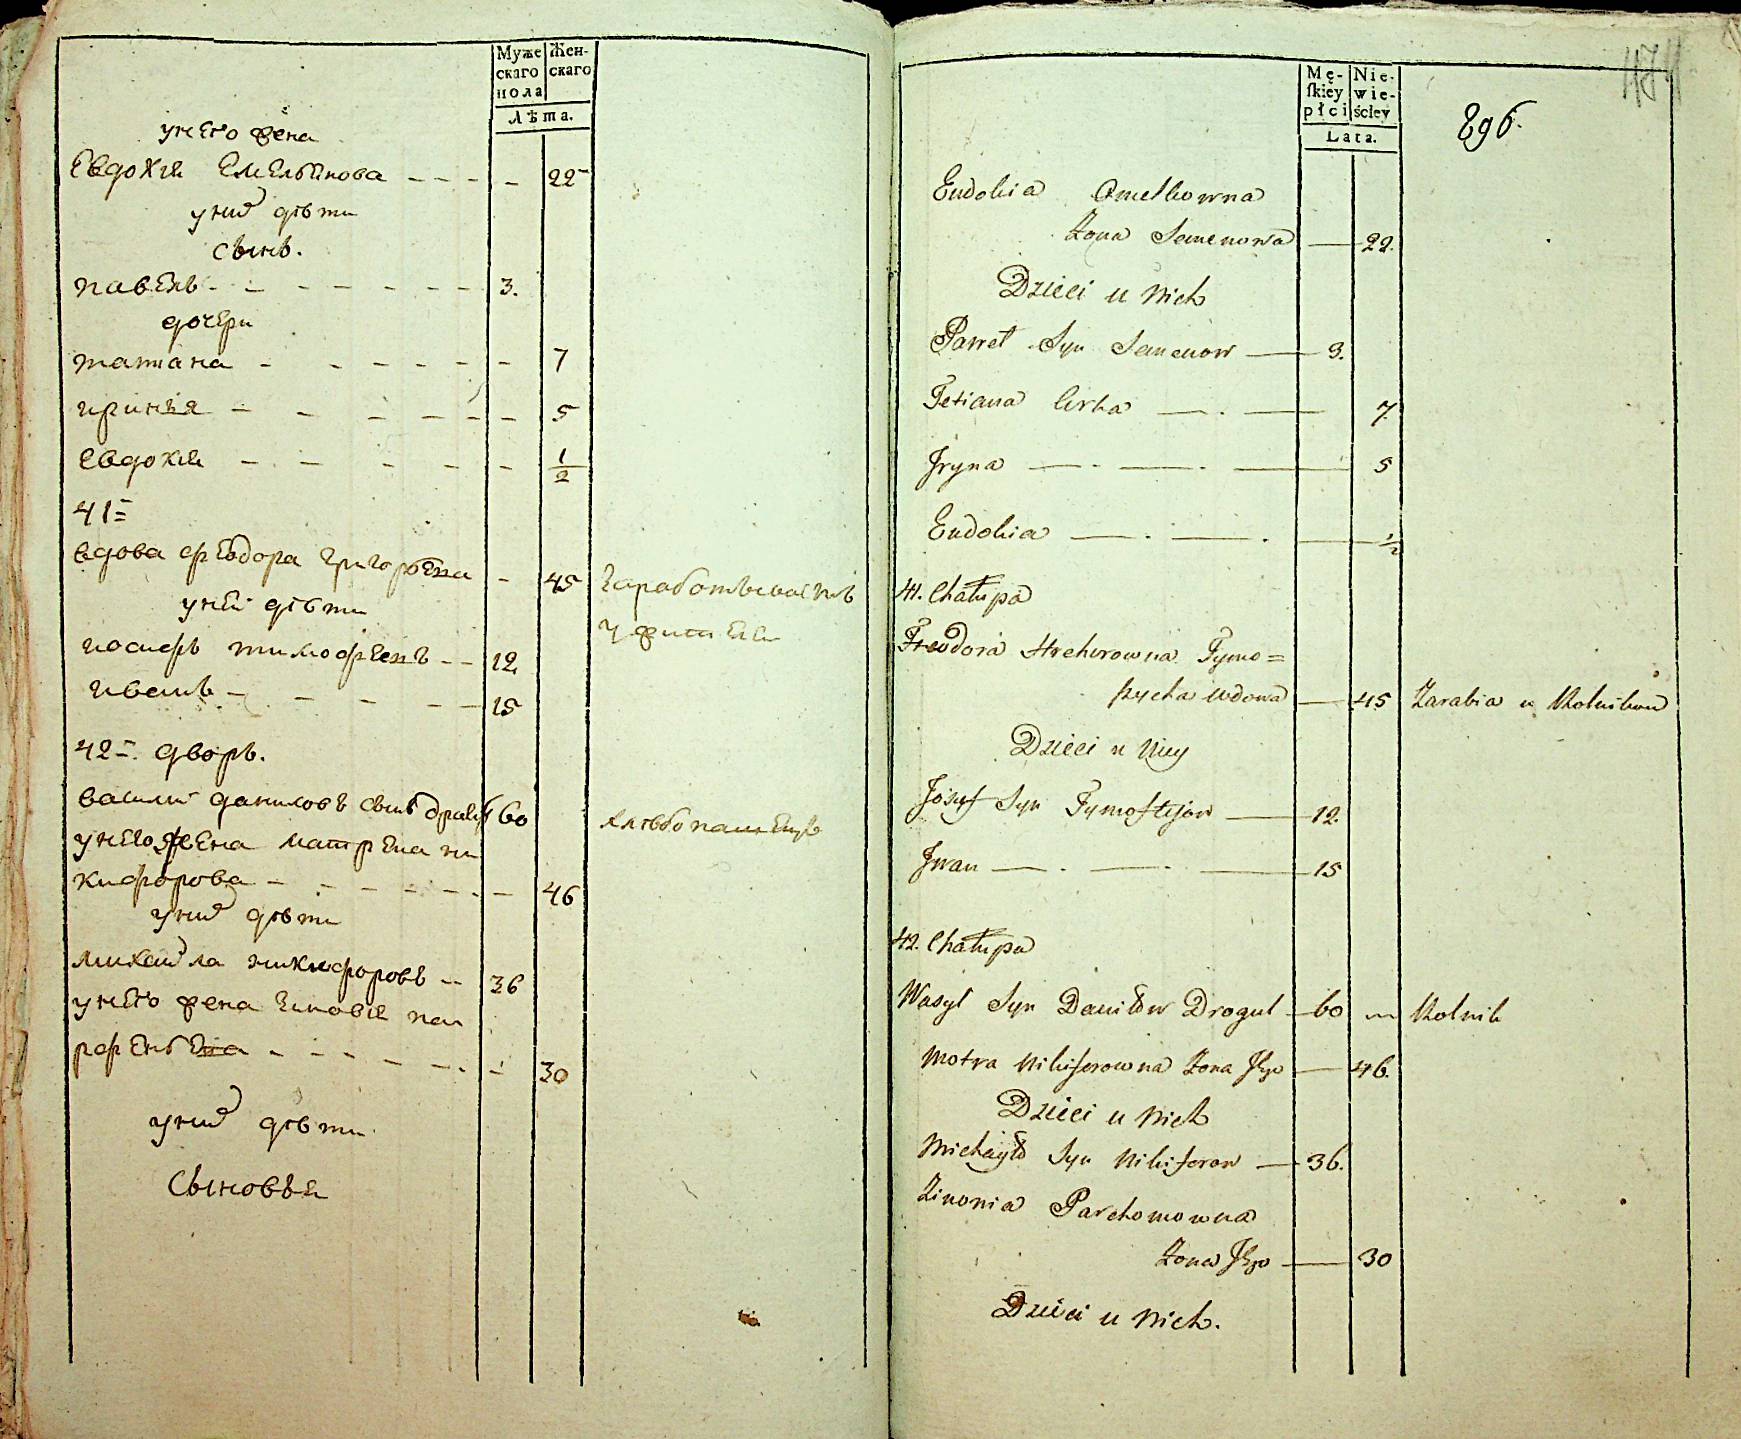 Муже
скаго
пола
Жен-
скаго
Лѣта.
у него жена
Евдокия Емельянова 22
у них дѣти
сынъ.
павелъ 3.
дочери
татиана 7
ирина 5
Евдокия 1/2
41
вдова феодора григорьева 45 Зарабатываетъ
у ней дѣти
иосифъ тимофеевъ 12
иванъ 15
42. дворъ.
василий даниловъ сынъ 60 хлебопашецъ
у него жена матрена ни
кифорова 46
у них дѣти
михайла никифоровъ 36
у него жена Зиновия пар
феньева 30
у них дѣти
Сыновья
Mę-
skiéy
płci
Nie-
wie-
ściey
Lata.
896.
Eudokia Omelkowna
Żona Semenowa 22.
Dzieci u Nich
Paweł Syn Semenow 3.
Tetiana Corka 7
Jryna 5
Eudokia 1/2
41. Chałupa
Teodora Hrehorowna Tymo=
wdowa 45 Zarabia u Rolnikow
Dzieci u Niey
Józef Syn Tymofiejow 12.
Jwan 15
42. Chałupa
Wasyl Syn Daniłow Drogul 60 Rolnik
Motra Nikiforowna Żona Jego 46.
Dzieci u Nich
Michayło Syn Nikiforow 36.
Zinowia Parchomowna
Żona Jego 30
Dzieci u Nich.